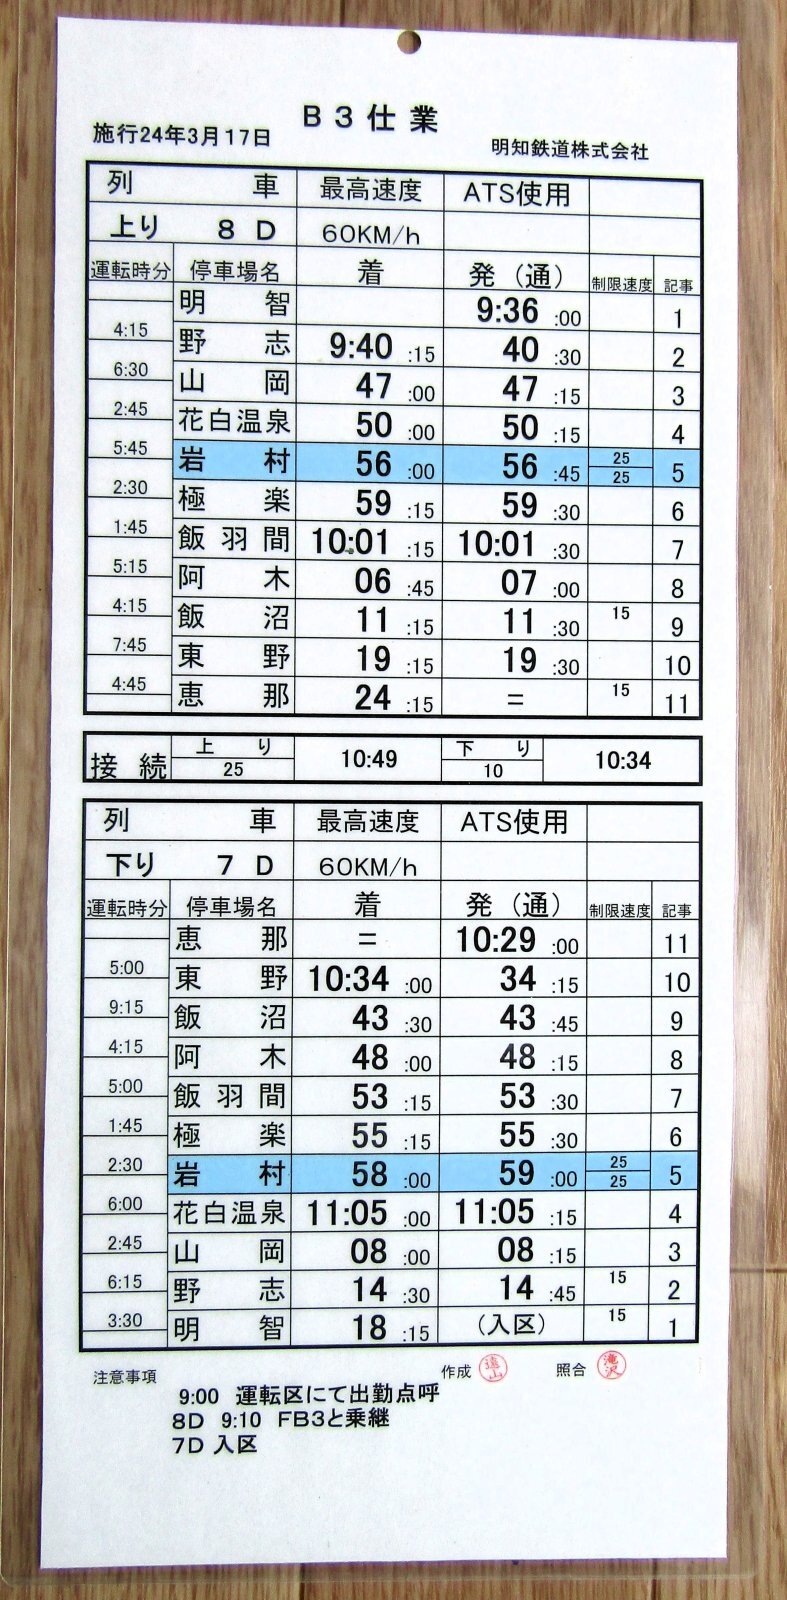 B3仕業
施行24年3月17日 明知鉄道株式会社
列車 最高速度 ATS使用
上り 8D 60KM/h
運転時分 停車場名 着 発(通) 制限速度 記事
明智 9:36 :00 1
4:15
野志 9:40 :15 40 :30 2
6:30
山岡 47 :00 47 :15 3
2:45
花白温泉 50 :00 50 :15 4
5:45
岩村 56 :00 56 :45 25 25 5
2:30
極楽 59 :15 59 :30 6
1:45
飯羽間 10:01 :15 10:01 :30 7
5:15
阿木 06 :45 07 :00 8
4:15
飯沼 11 :15 11 :30 15 9
7:45
東野 19 :15 19 :30 10
4:45
恵那 24 :15 = 15 11
接続 上り 25 10:49 下り 10 10:34
列車 最高速度 ATS使用
下り 7D 60KM/h
運転時分 停車場名 着 発(通) 制限速度 記事
恵那 = 10:29 :00 11
5:00
東野 10:34 :00 34 :15 10
9:15
飯沼 43 :30 43 :45 9
4:15
阿木 48 :00 48 :15 8
5:00
飯羽間 53 :15 53 :30 7
1:45
極楽 55 :15 55 :30 6
2:30
岩村 58 :00 59 :00 25 25 5
6:00
花白温泉 11:05 :00 11:05 :15 4
2:45
山岡 08 :00 08 :15 3
6:15
野志 14 :30 14 :45 15 2
3:30
明智 18 :15 (入区) 15 1
注意事項 作成 遠山 照合 滝沢
9:00 運転区にて出勤点呼
8D 9:10 FB3と乗継
7D 入区